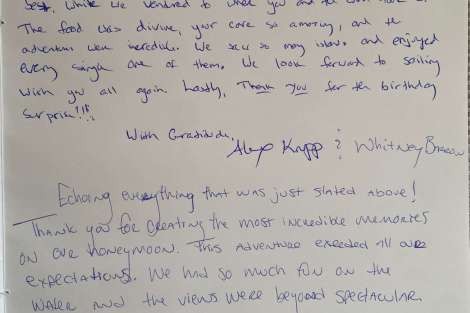 best, while we ventured to what you and the
The food was divine, your care so amazing, and the
adventures were incredible. We saw so many islands and enjoyed
every single one of them. We look forward to sailing
with you all again. Lastly, Thank you for the birthday
surprise!!!
With Gratitude,
Alexo Knapp & Whitney
Echoing everything that was just stated above!
Thank you for creating the most incredible memories
on our honeymoon. This adventure exceeded all our
expectations. We had so much fun on the
water and the views were beyond spectacular.